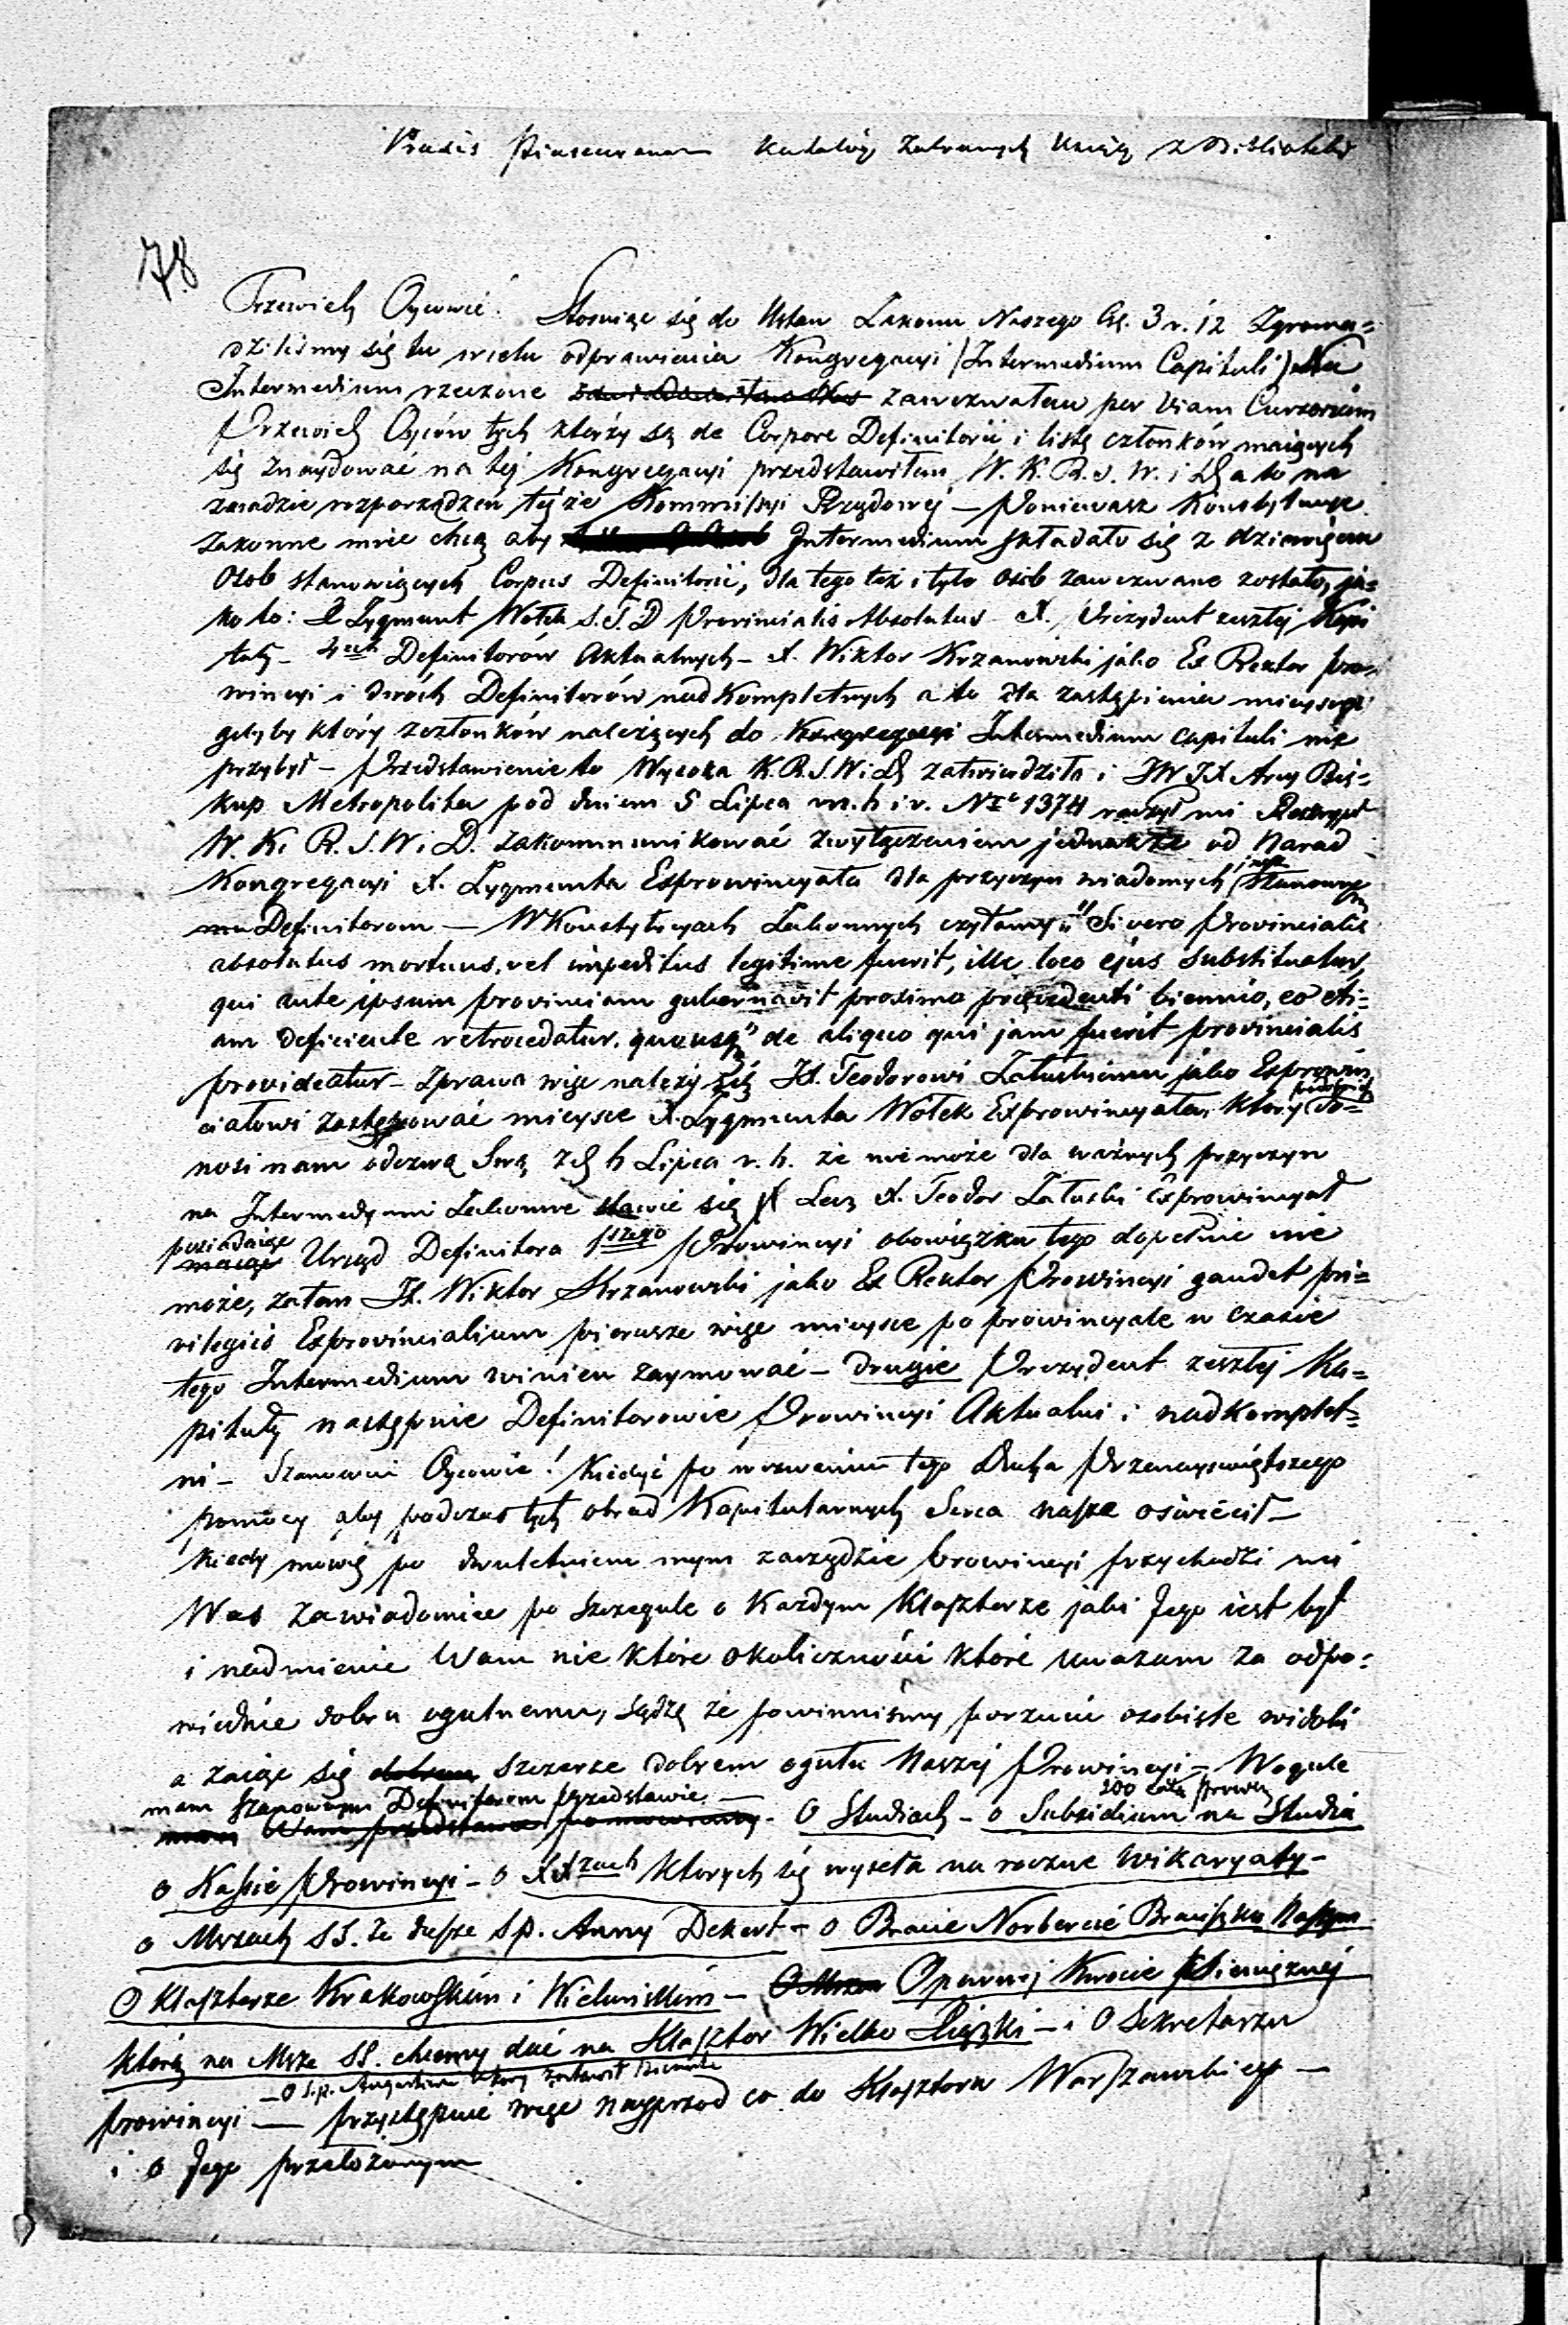 Katalog zabranych Książ z Biblioteki
78
Przewiel. Oycowie! Stosuiąc się do Ustaw Zakonu Naszego Cz. 3 r. 12 Zgroma=
dziliśmy się tu w celu odprawienia Kongregacyi (Intermedium Capituli) Na
Intermedium rzeczone zawezwałem per Viam Cursoriam
Przewiel. Oyców tych którzy są de Corpore Definitorii i listę członków maiących
się znaydować na téj Kongregacyi przedstawiłem W. K. R. S. W. i D. a to na
zasadzie rozporządzeń téjże Kommissyi Rządowéj – Poniewasz Konstytucye
zakonne mieć chcą aby Intermedium składało się z dziewięciu
Osób stanowiących Corpus Definitorii, dla tego téż i tyle osób zawezwane zostało, ja=
ko to: X Zygmunt Wołek S. T. D Provincialis Absolutus X. Prezydent zeszłéj Kapi
tuły – 4rech Definitorów Aktualnych – X. Wiktor Krzanowski jako Ex Rektor Pro=
wincyi i dwóch Definitorów nadkompletnych a to dla zastąpienia mieysca
gdyby który z członków należących do Kongregacyi Intermedium capituli nie
przybył – Przedstawienie to Wysoka K. R. S. W i D. zatwierdziła i JW JX Arcy Bis=
kup Metropolita pod dniem 5 Lipca m. b. i r. No 1374 raczył mi Reskrypt
W. K. R. S. W. i D. zakommunikować z wyłączeniem jednakże od Narad
Kongregacyi X. Zygmunta Exprowincyała dla przyczyn wiadomych Szanowny
m Definitorom — W Konstytucyach Zakonnych czytamy: "Si vero Provincialis
absolutus mortuus, vel impeditus legitime fuerit, ille loco ejus substituatur,
qui ante ipsum provinciam gubernavit proximo præcedenti biennio, eo eti=
am deficiente retrocedatur, quousq" de aliquo qui jam fuerit provincialis
provideatur – z prawa więc należy się JX. Teodorowi Załuskiemu jako Exprowin
ciałowi zastępować mieysce X. Zygmunta Wołek Exprowincyała, który do=
nosi nam odezwą Swą z d. 6 Lipca r. b. że nie może dla ważnych przyczyn
na Intermedyum Zakonne stawić się Lecz X. Teodor Załuski Exprowincyał
posiadaiąc
maiąc Urząd Definitora 1szego Prowincyi obowiązku tego dopełnić nie
może, zatem JX. Wiktor Krzanowski jako Ex Rektor Prowincyi gaudet pri=
vilegiis Exprovincialium pierwsze więc mieysce po prowincyale w czasie
tego Intermedium winien zaymować – drugie Prezydent zeszłéj Ka=
pituły następnie Definitorowie Prowincyi Aktualni i nadkomplet=
ni – Szanowni Oycowie! Kiedyć po wezwaniu tego Ducha Przenayświętszego
pomocy aby podczas tych obrad Kapitularnych Serca nasze oświecił –
Kiedy mówię po dwuletniem mym zarządzie Prowincyi przychodzi mi
Was zawiadomić po szczegule o każdym Klasztorze jaki Jego jest byt
i nadmienić Wam nie które okoliczności które uważam za odpo=
wiednie dobru ogulnemu, sądzę że powinniśmy porzucić osobiste widoki
a zaiąć się dobrem szczerze dobrem ogułu Naszéj Prowincyi – Wogule
mam Szanownym Definitorom przedstawić –
200 całą prowin
O Studiach – o Subsidium na Studia
o Kassie Prowincyi – o XXzach których się wyseła na roczne Wikaryaty –
o Mszach SS. za duszę śp. Anny Dekert – o Bracie Norbercie Braciszku Naszym
O Klasztorze Krakowskim i Wielunskim – O pewnéj Kwocie Pieniężnéj
którą na Msze SS. chcemy dać na Klasztor Wielko – i O Sekretarzu
– O ś.p. Augustynie który zostawił
prowincyi — przystępuię więc nayprzód co do Klasztoru Warszawskiego –
i o Jego przełożonym